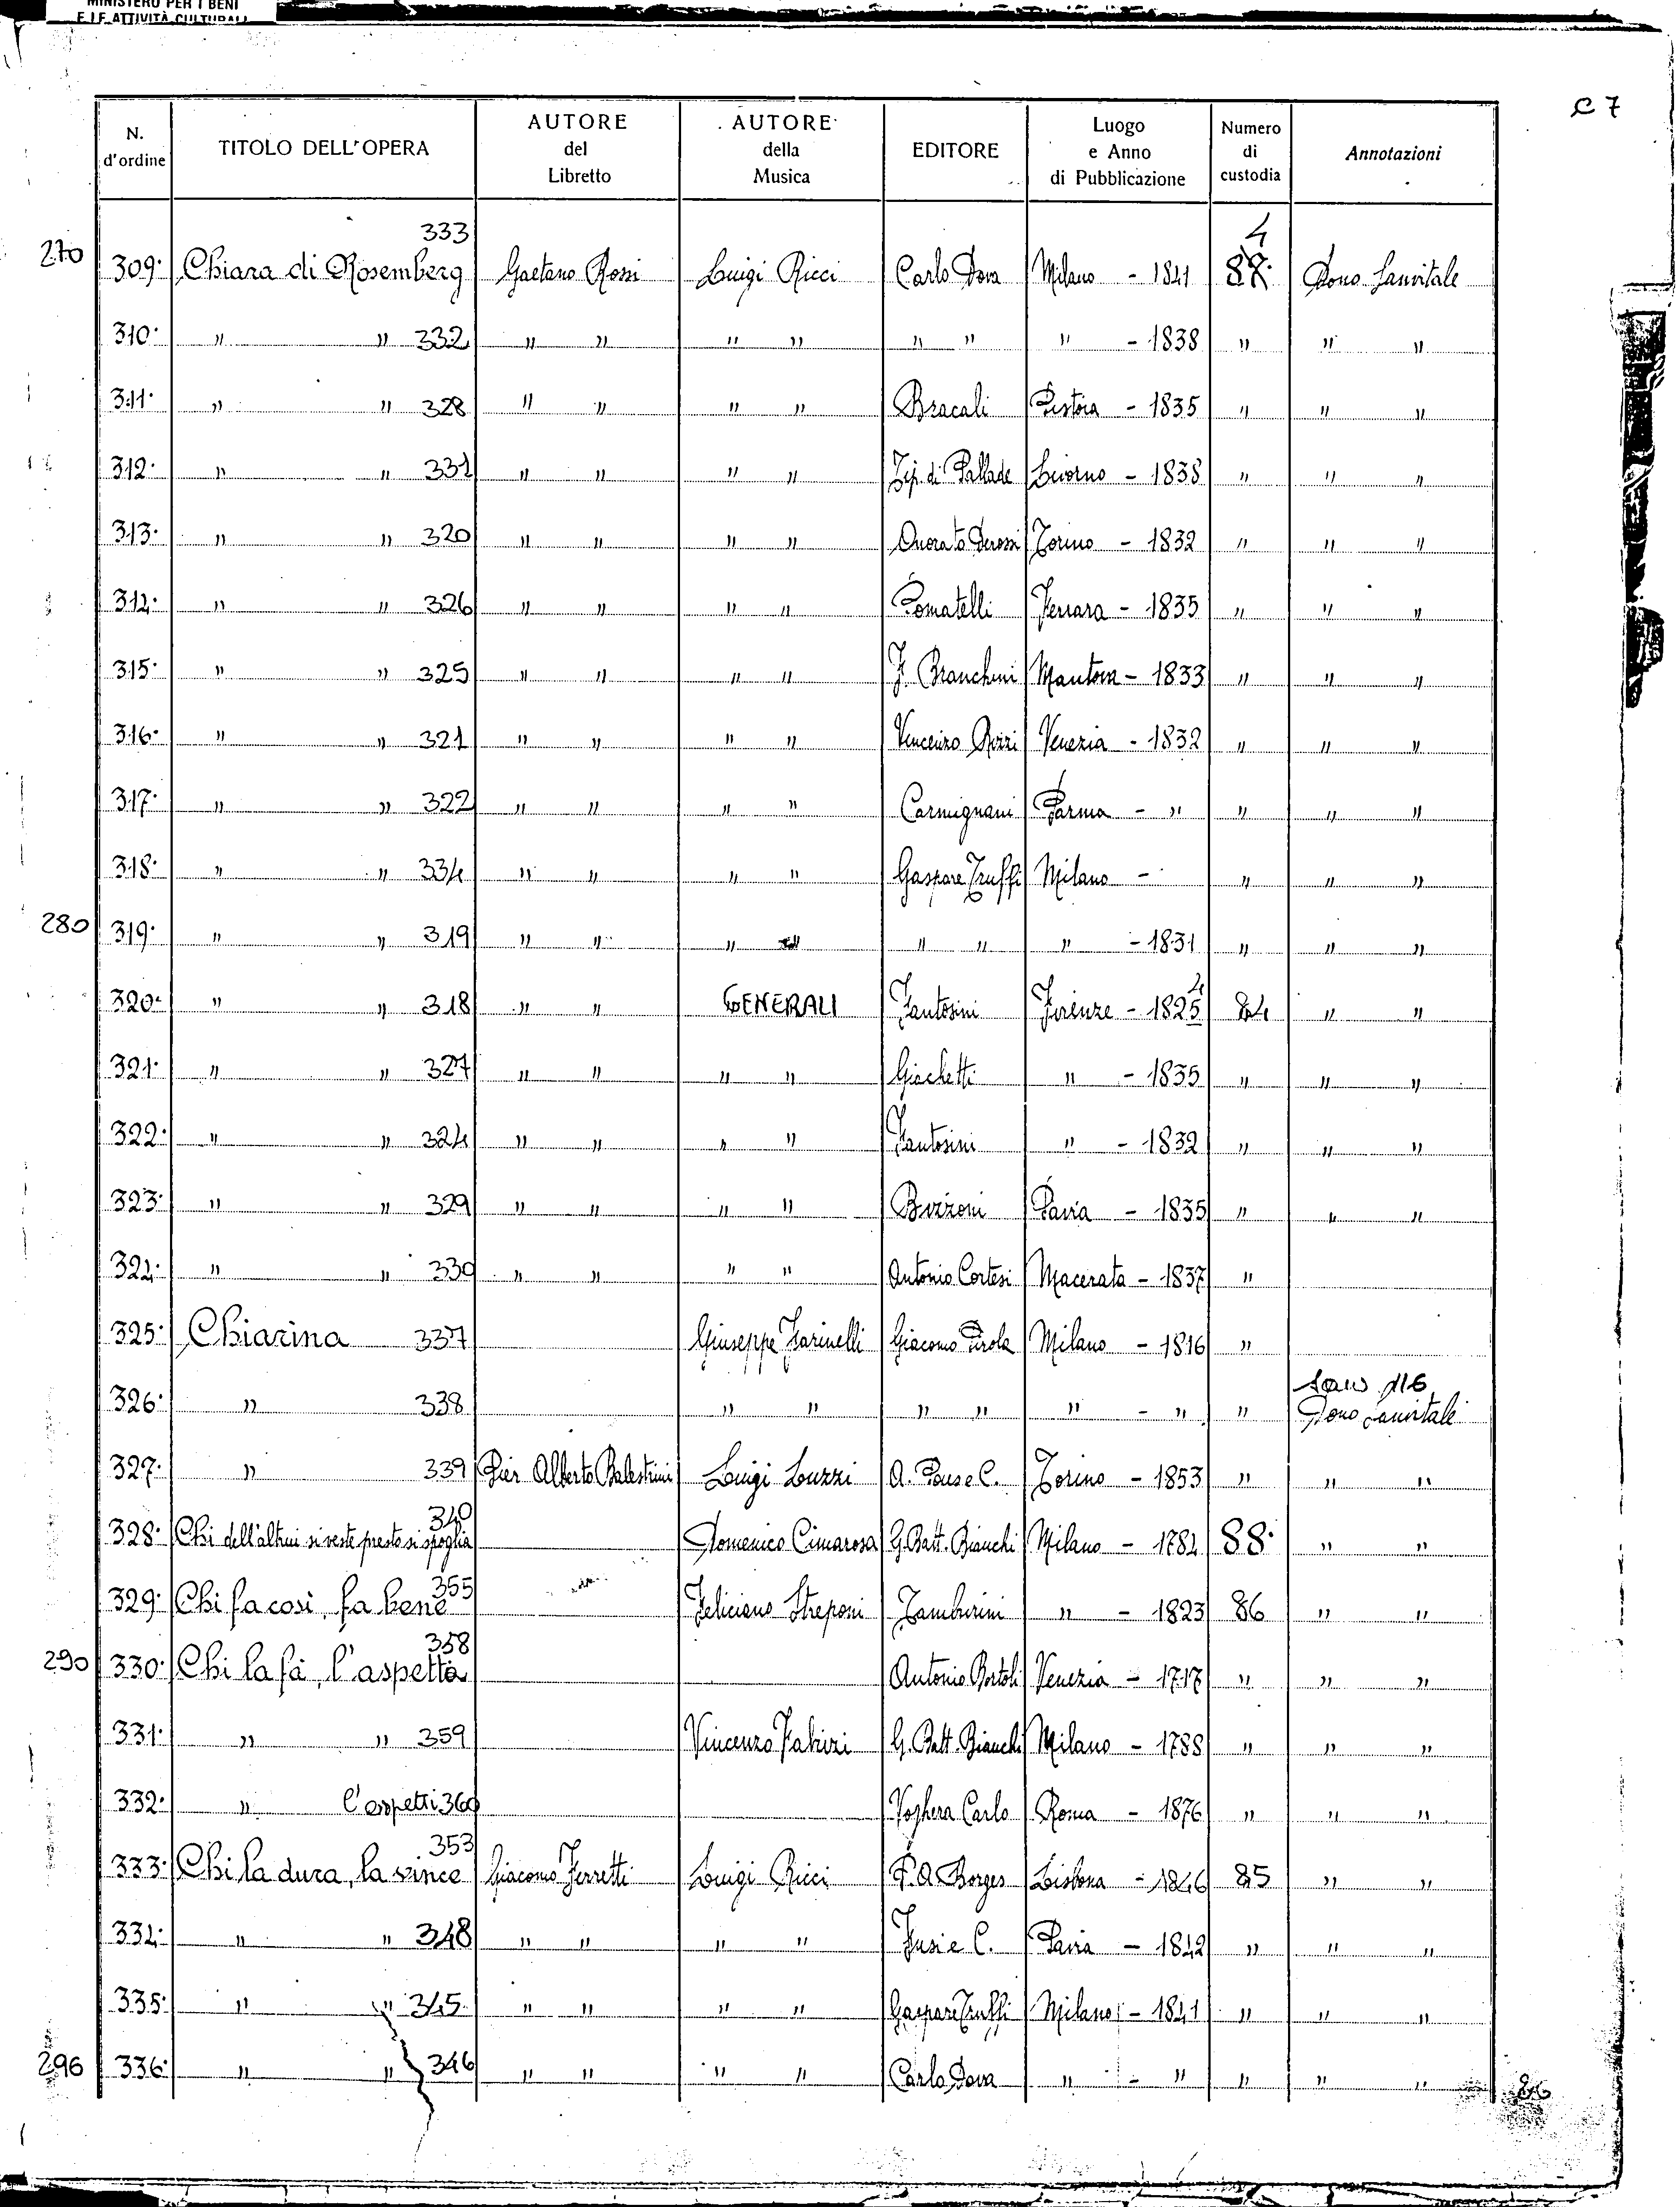 MINISTERO PER I BENI
E LE ATTIVITÀ CULTURALI
C 7
N. d'ordine TITOLO DELL'OPERA AUTORE del Libretto AUTORE della Musica EDITORE Luogo e Anno di Pubblicazione Numero di custodia Annotazioni
333 4
270 309· Chiara di Rosemberg Gaetano Rossi Luigi Ricci Carlo Dova Milano - 1841 Dono Sanvitale
310· " " 332 " " " " " " " - 1838 " " "
311· " " 328 " " " " Bracali Pistoia - 1835 " " "
312· " " 331 " " " " Tip. di Pallade Livorno - 1838 " " "
313· " " 320 " " " " Onorato Derossi Torino - 1832 " " "
314· " " 326 " " " " Pomatelli Ferrara - 1835 " " "
315· " " 325 " " " " F. Branchini Mantova - 1833 " " "
316· " " 321 " " " " Vincenzo Rizzi Venezia - 1832 " " "
317· " " 322 " " " " Carmignani Parma - " " " "
318· " " 334 " " " " Gaspare Truffi Milano - " " "
280 319· " " 319 " " " " " " " - 1831 " " "
320· " " 318 " " GENERALI Fantosini Firenze - 1825 84 " "
321· " " 327 " " " " Giachetti " - 1835 " " "
322· " " 324 " " " " Fantosini " - 1832 " " "
323· " " 329 " " " " Bizzoni Pavia - 1835 " " "
324· " " 330 " " " " Antonio Cortesi Macerata - 1837 "
325· Chiarina 337 Giuseppe Farinelli Giacomo Pirola Milano - 1816 "
326· " 338 " " " " " - " " Dono Sanvitale
327· " 339 Pier Alberto Balestrini Luigi Luzzi A. Pons e C. Torino - 1853 " " "
340
328· Chi dell'altrui si veste presto si spoglia Domenico Cimarosa G. Batt. Bianchi Milano - 1784 88· " "
355
329· Chi fa così, fa bene Feliciano Streponi Tamburini " - 1823 86 " "
358
290 330· Chi la fà, l'aspetta Antonio Bortoli Venezia - 1717 " " "
331· " " 359 Vincenzo Fabizi G. Batt. Bianchi Milano - 1788 " " "
332· " l'aspetti 360 Voghera Carlo Roma - 1876 " " "
353
333· Chi la dura, la vince Giacomo Ferretti Luigi Ricci P. A. Borges Lisbona - 1846 85 " "
334· " " 348 " " " " Fusi e C. Pavia - 1842 " " "
335· " " 345 " " " " Gaspare Truffi Milano - 1841 " " "
296 336· " " 346 " " " " Carlo Dova " - " " " "